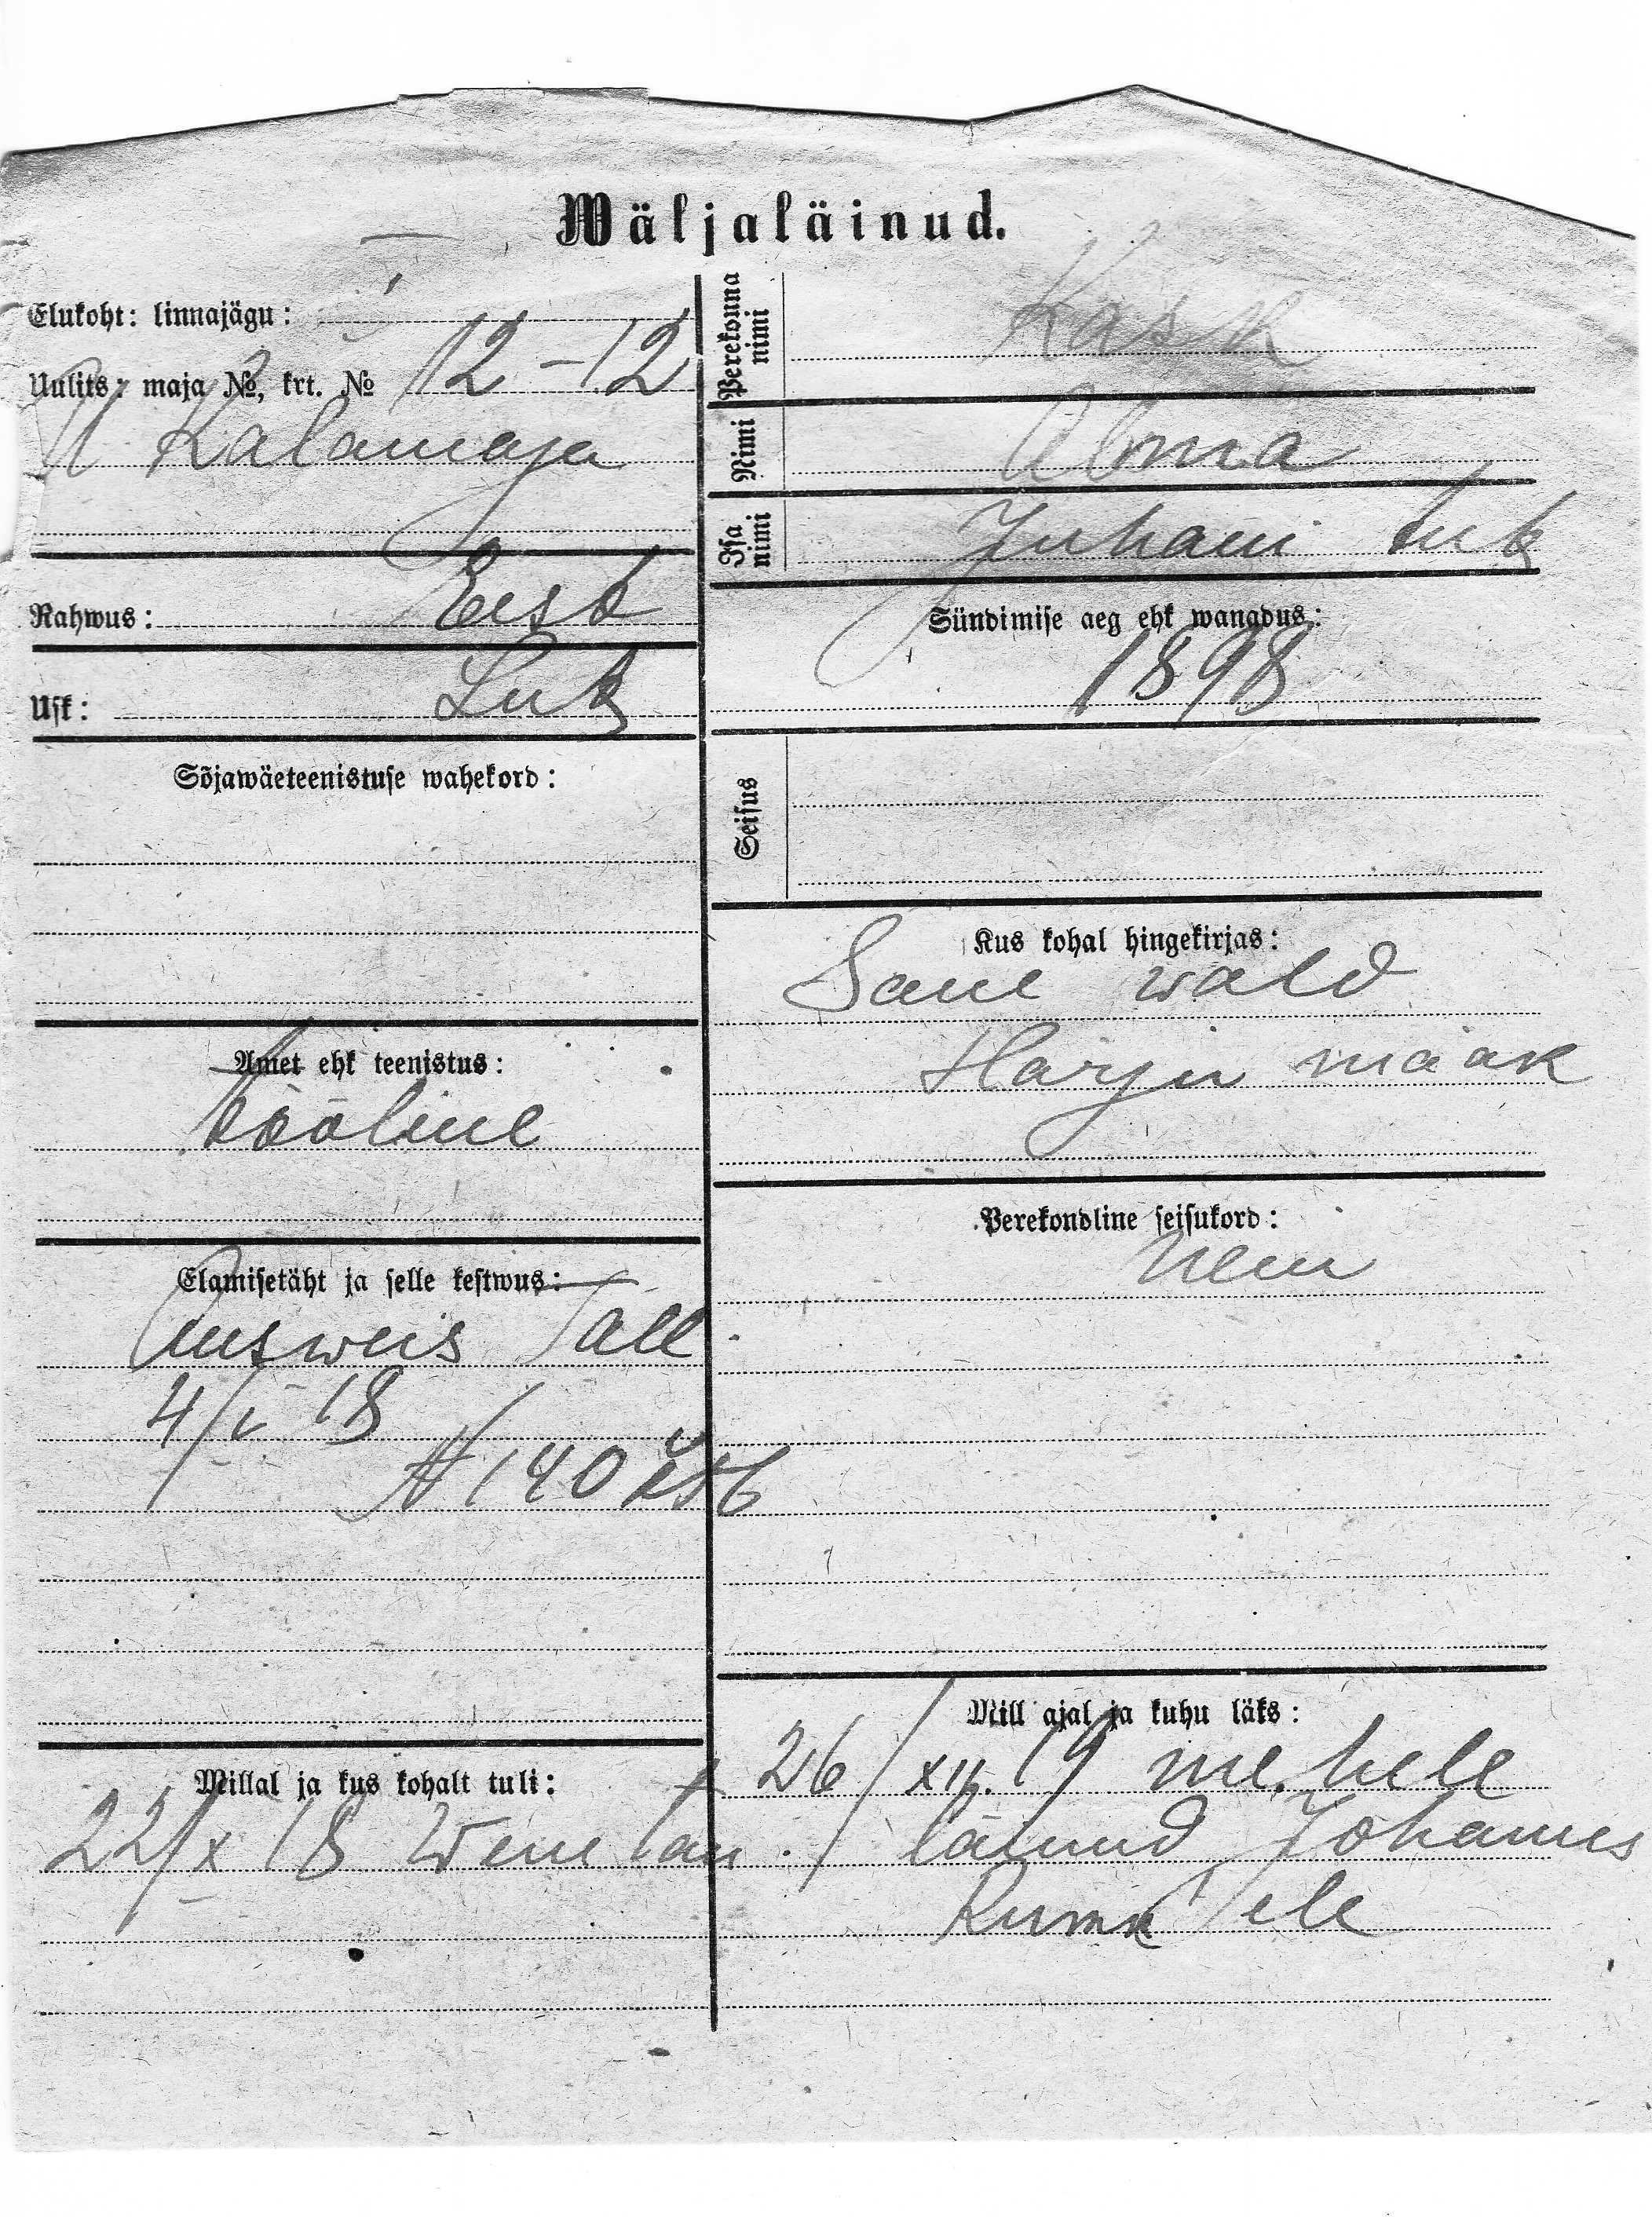 Wäljaläinud.
Elukoht: linnajägu: I
Uulits: maja №, krt. № 12-12
Kalamaja
Rahwus: Eest
Usk: Lut
Sõjawäeteenistuse wahekord:
Amet ehk teenistus:
tööline
Elamisetäht ja selle kestwus:
Ausweis Tall
4/V 18
№ 140
Millal ja kus kohalt tuli:
22/X 18 Wene tän.
Perekonna nimi Kask
Nimi Alma
Isa nimi Juhani tut
Sündimise aeg ehk wanadus:
1898
Seisus
Kus kohal hingekirjas:
Saue wald
Harju maak
Perekondline seisukord:
Mill ajal ja kuhu läks:
26/XII. 19 mehele
läinud Johannes